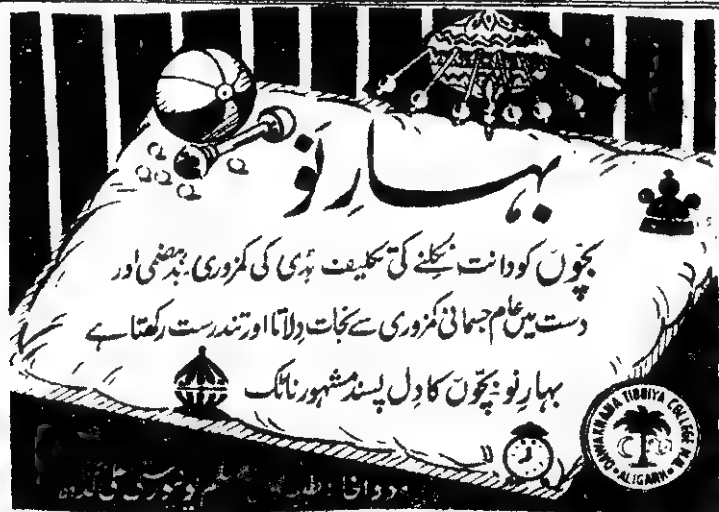 بہارِ نَو
بچّوں کو دانت نکلنے کی تکلیف ہڈی کی کمزوری بدہضمی اور
دست میں عام جسمانی کمزوری سے نجات دِلاتا اور تندرست رکھتا ہے
بہارِ نو: بچّوں کا دِل پسند مشہور ٹانک
DAWAKHANA TIBBIYA COLLEGE M.U. ALIGARH
دواخانہ طبیہ کالج مسلم یونیورسٹی علی گڑھ